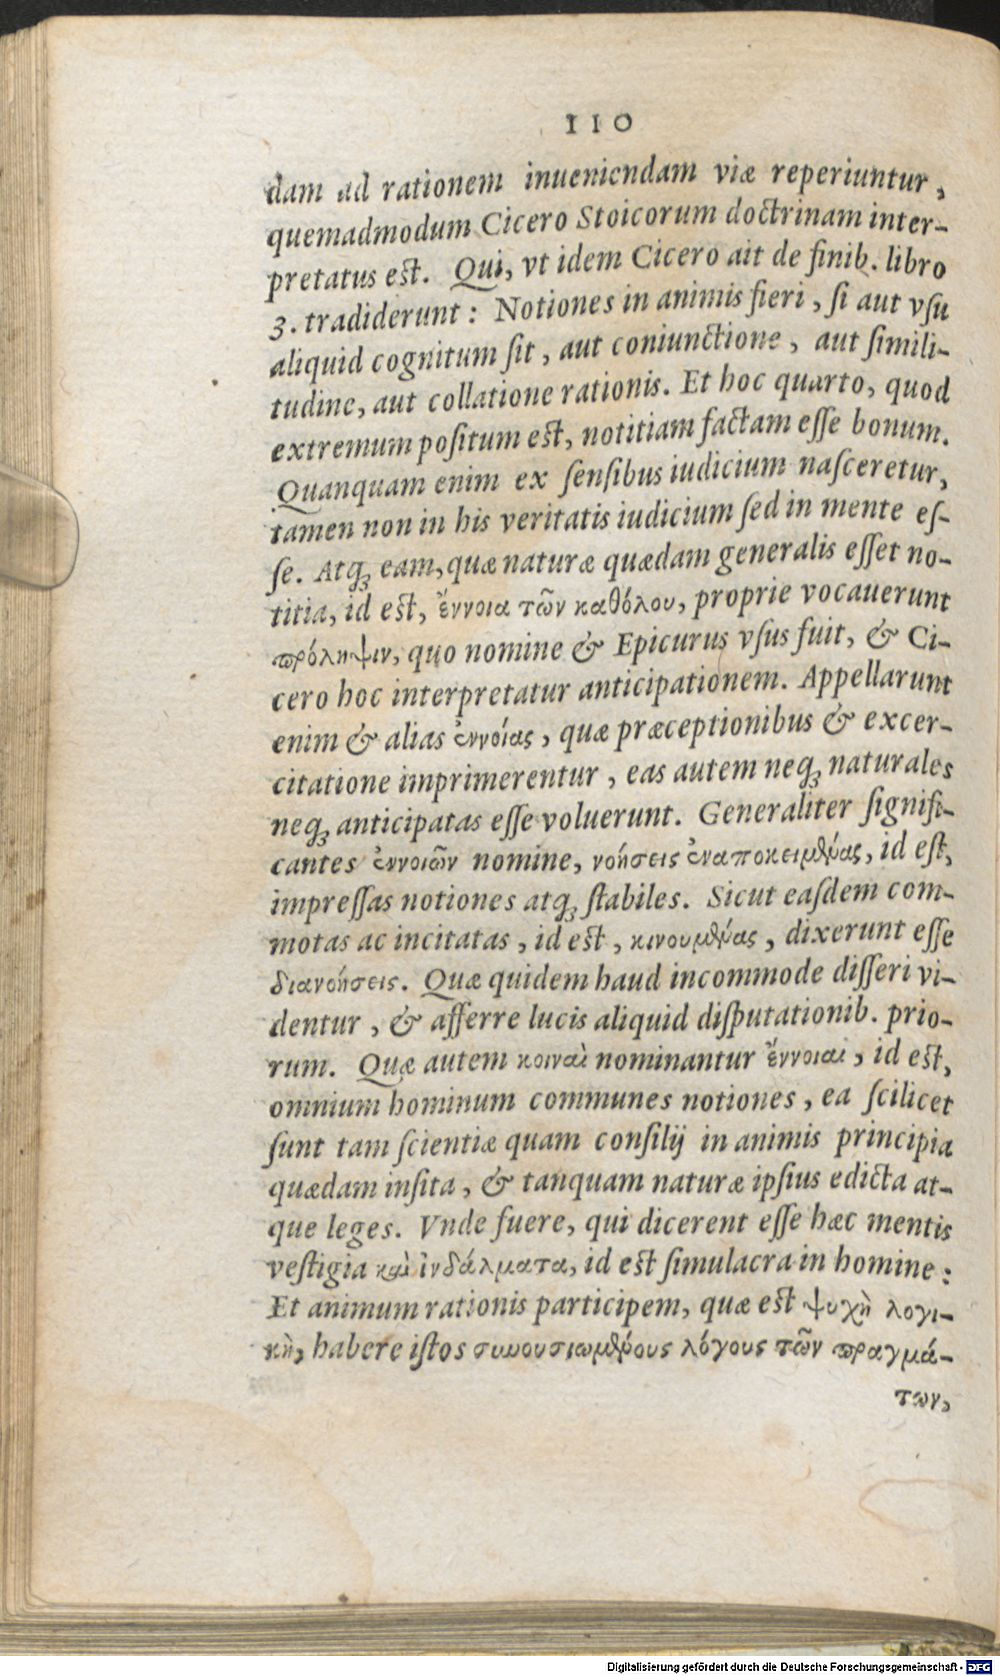 110
dam ad rationem inueniendam viæ reperiuntur,
quemadmodum Cicero Stoicorum doctrinam inter-
pretatus est. Qui, vt idem Cicero ait de finib. libro
3. tradiderunt: Notiones in animis fieri, ſi aut vſu
aliquid cognitum ſit, aut coniunctione, aut ſimili-
tudine, aut collatione rationis. Et hoc quarto, quod
extremum poſitum est, notitiam factam eſſe bonum.
Quanquam enim ex ſenſibus iudicium naſceretur,
tamen non in his veritatis iudicium ſed in mente eſ-
ſe. Atq; eam, quæ naturæ quædam generalis eſſet no-
titia, id est, ἔννοια τῶν καθόλου, proprie vocauerunt
πρόληψιν, quo nomine & Epicurus vſus fuit, & Ci-
cero hoc interpretatur anticipationem. Appellarunt
enim & alias ἐννοίας, quæ præceptionibus & excer-
citatione imprimerentur, eas autem neq; naturales
neq; anticipatas eſſe voluerunt. Generaliter ſignifi-
cantes ἐννοιῶν nomine, νοήσεις ἐναποκειμένας, id eſt,
impreſſas notiones atq; ſtabiles. Sicut eaſdem com-
motas ac incitatas, id est, κινουμένας, dixerunt eſſe
διανοήσεις. Quæ quidem haud incommode diſſeri vi-
dentur, & afferre lucis aliquid diſputationib. prio-
rum. Quæ autem κοιναὶ nominantur ἔννοιαι, id est,
omnium hominum communes notiones, ea ſcilicet
ſunt tam ſcientiæ quam conſilij in animis principia
quædam inſita, & tanquam naturæ ipſius edicta at-
que leges. Vnde fuere, qui dicerent eſſe hæc mentis
veſtigia καὶ ἰνδάλματα, id est ſimulacra in homine:
Et animum rationis participem, quæ est ψυχὴ λογι-
κὴ, habere iſtos συνουσιωμένους λόγους τῶν πραγμά-
των,
Digitalisierung gefördert durch die Deutsche Forschungsgemeinschaft - DFG